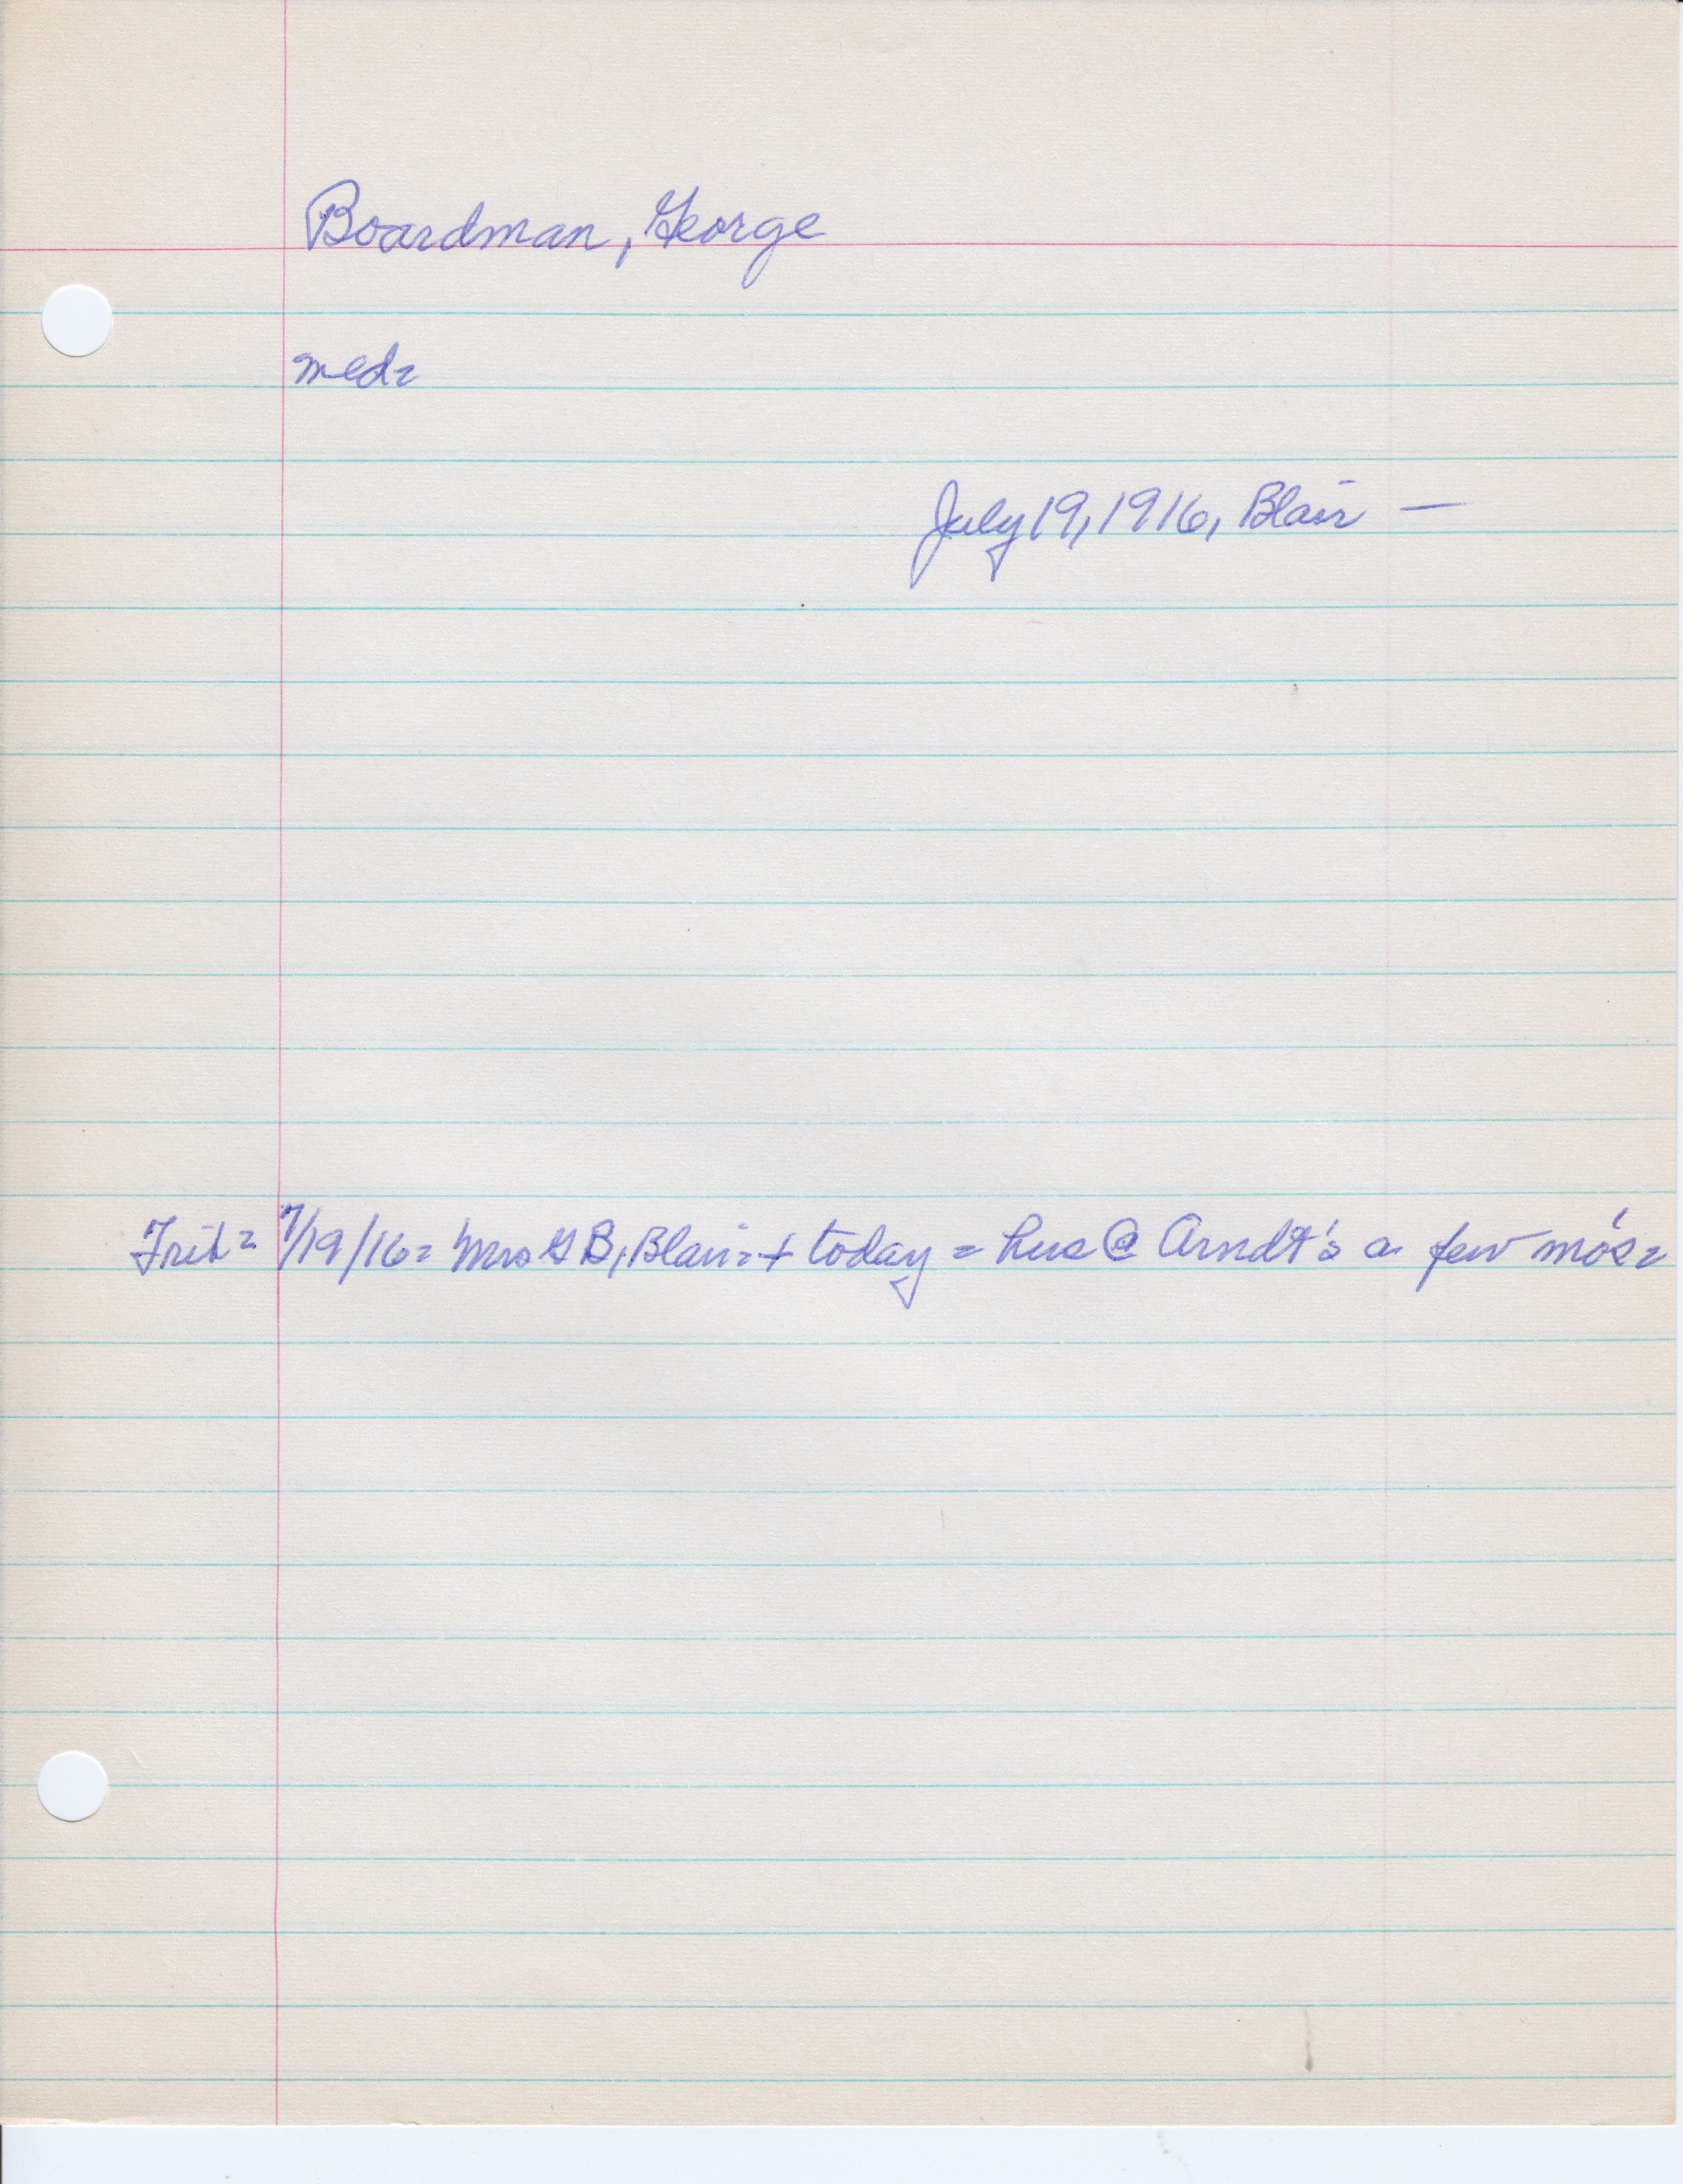 Boardman, George
med=
July 19, 1916, Blair —
Trib= 7/19/16= Mrs G B, Blair= + today = @ Arndt's a few mo's=